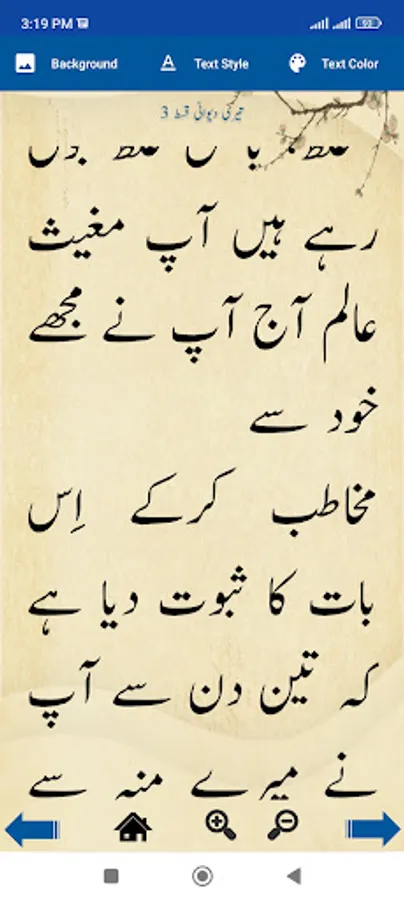 3:19 PM
93
Background
Text Style
Text Color
تیری دیوانی قسط 3
رہے ہیں آپ مغیث
عالم آج آپ نے مجھے
خود سے
مخاطب کرکے اِس
بات کا ثبوت دیا ہے
کہ تین دن سے آپ
نے میرے منہ سے